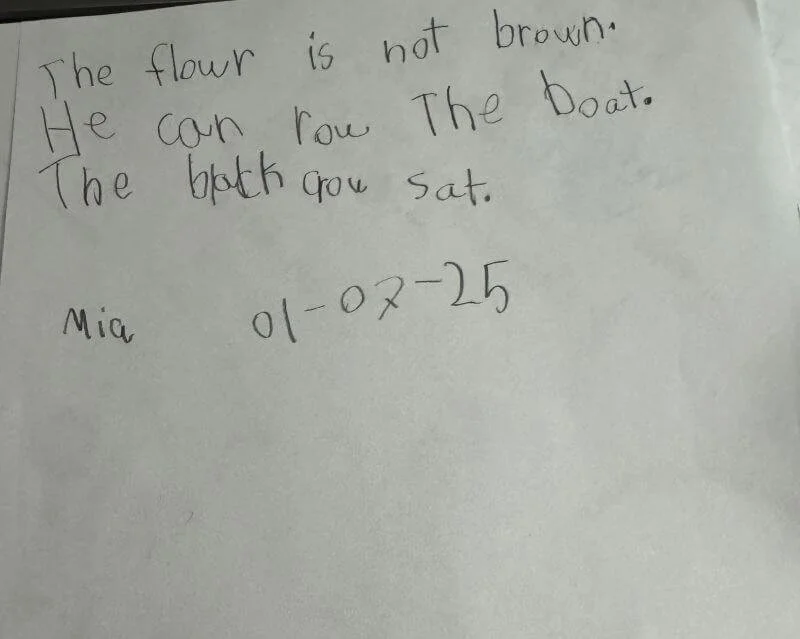 The flowr is not brown.
He can row The boat.
The crow sat.
Mia 01-07-25